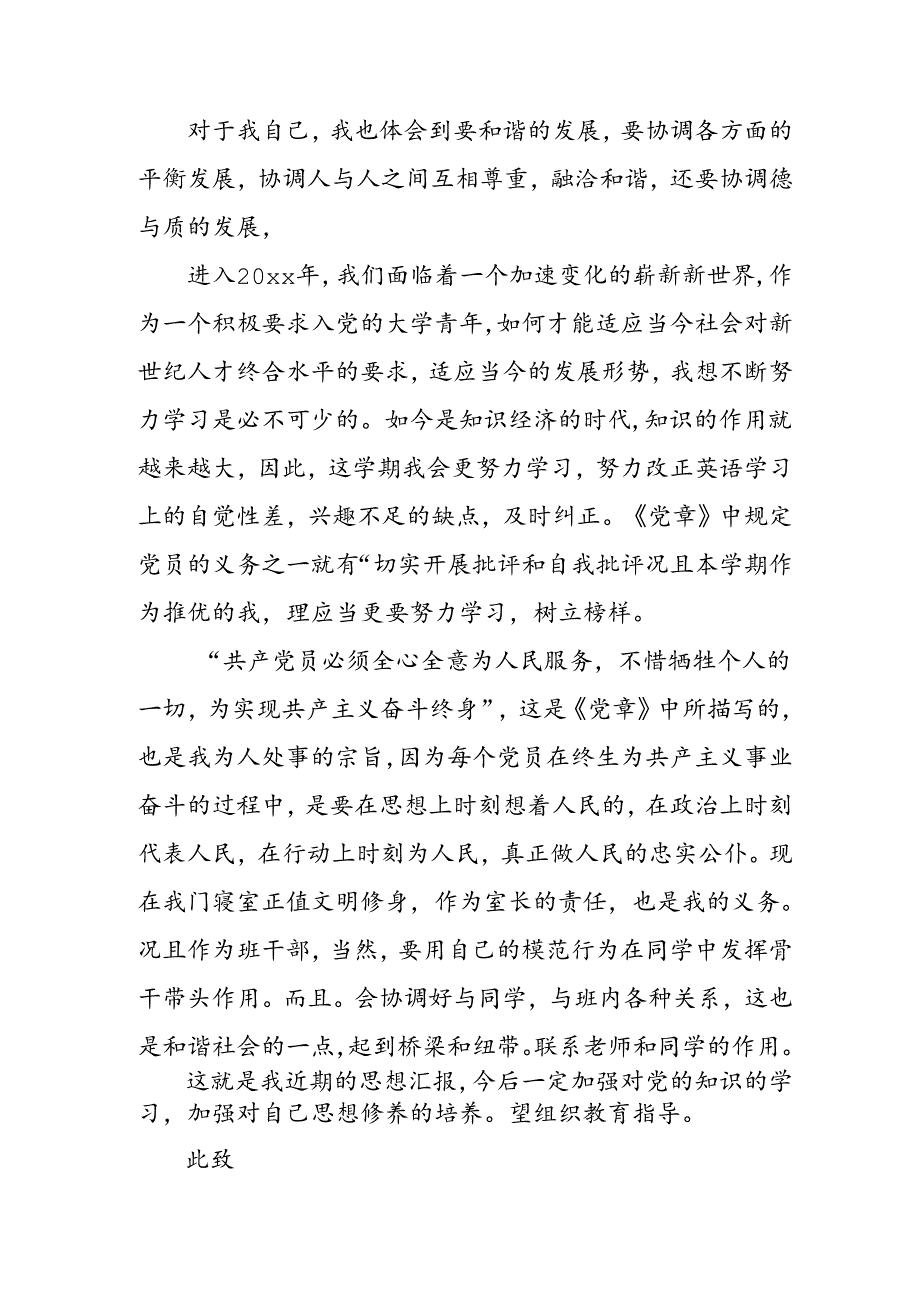 对于我自己，我也体会到要和谐的发展，要协调各方面的
平衡发展，协调人与人之间互相尊重，融洽和谐，还要协调德
与质的发展，
进入20xx年，我们面临着一个加速变化的崭新新世界，作
为一个积极要求入党的大学青年，如何才能适应当今社会对新
世纪人才终合水平的要求，适应当今的发展形势，我想不断努
力学习是必不可少的。如今是知识经济的时代，知识的作用就
越来越大，因此，这学期我会更努力学习，努力改正英语学习
上的自觉性差，兴趣不足的缺点，及时纠正。《党章》中规定
党员的义务之一就有“切实开展批评和自我批评况且本学期作
为推优的我，理应当更要努力学习，树立榜样。
“共产党员必须全心全意为人民服务，不惜牺牲个人的
一切，为实现共产主义奋斗终身”，这是《党章》中所描写的，
也是我为人处事的宗旨，因为每个党员在终生为共产主义事业
奋斗的过程中，是要在思想上时刻想着人民的，在政治上时刻
代表人民，在行动上时刻为人民，真正做人民的忠实公仆。现
在我门寝室正值文明修身，作为室长的责任，也是我的义务。
况且作为班干部，当然，要用自己的模范行为在同学中发挥骨
干带头作用。而且。会协调好与同学，与班内各种关系，这也
是和谐社会的一点，起到桥梁和纽带。联系老师和同学的作用。
这就是我近期的思想汇报，今后一定加强对党的知识的学
习，加强对自己思想修养的培养。望组织教育指导。
此致